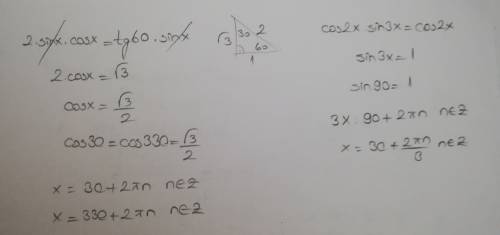 2·sinx·cosx=tg60·sinx
2·cosx=√3
cosx=√3/2
cos30=cos330=√3/2
x=30+2πn n∈Z
x=330+2πn n∈Z
√3 30 2
60
1
cos2x sin3x=cos2x
sin3x=1
sin90=1
3x·90+2πn n∈Z
x=30+2πn/3 n∈Z